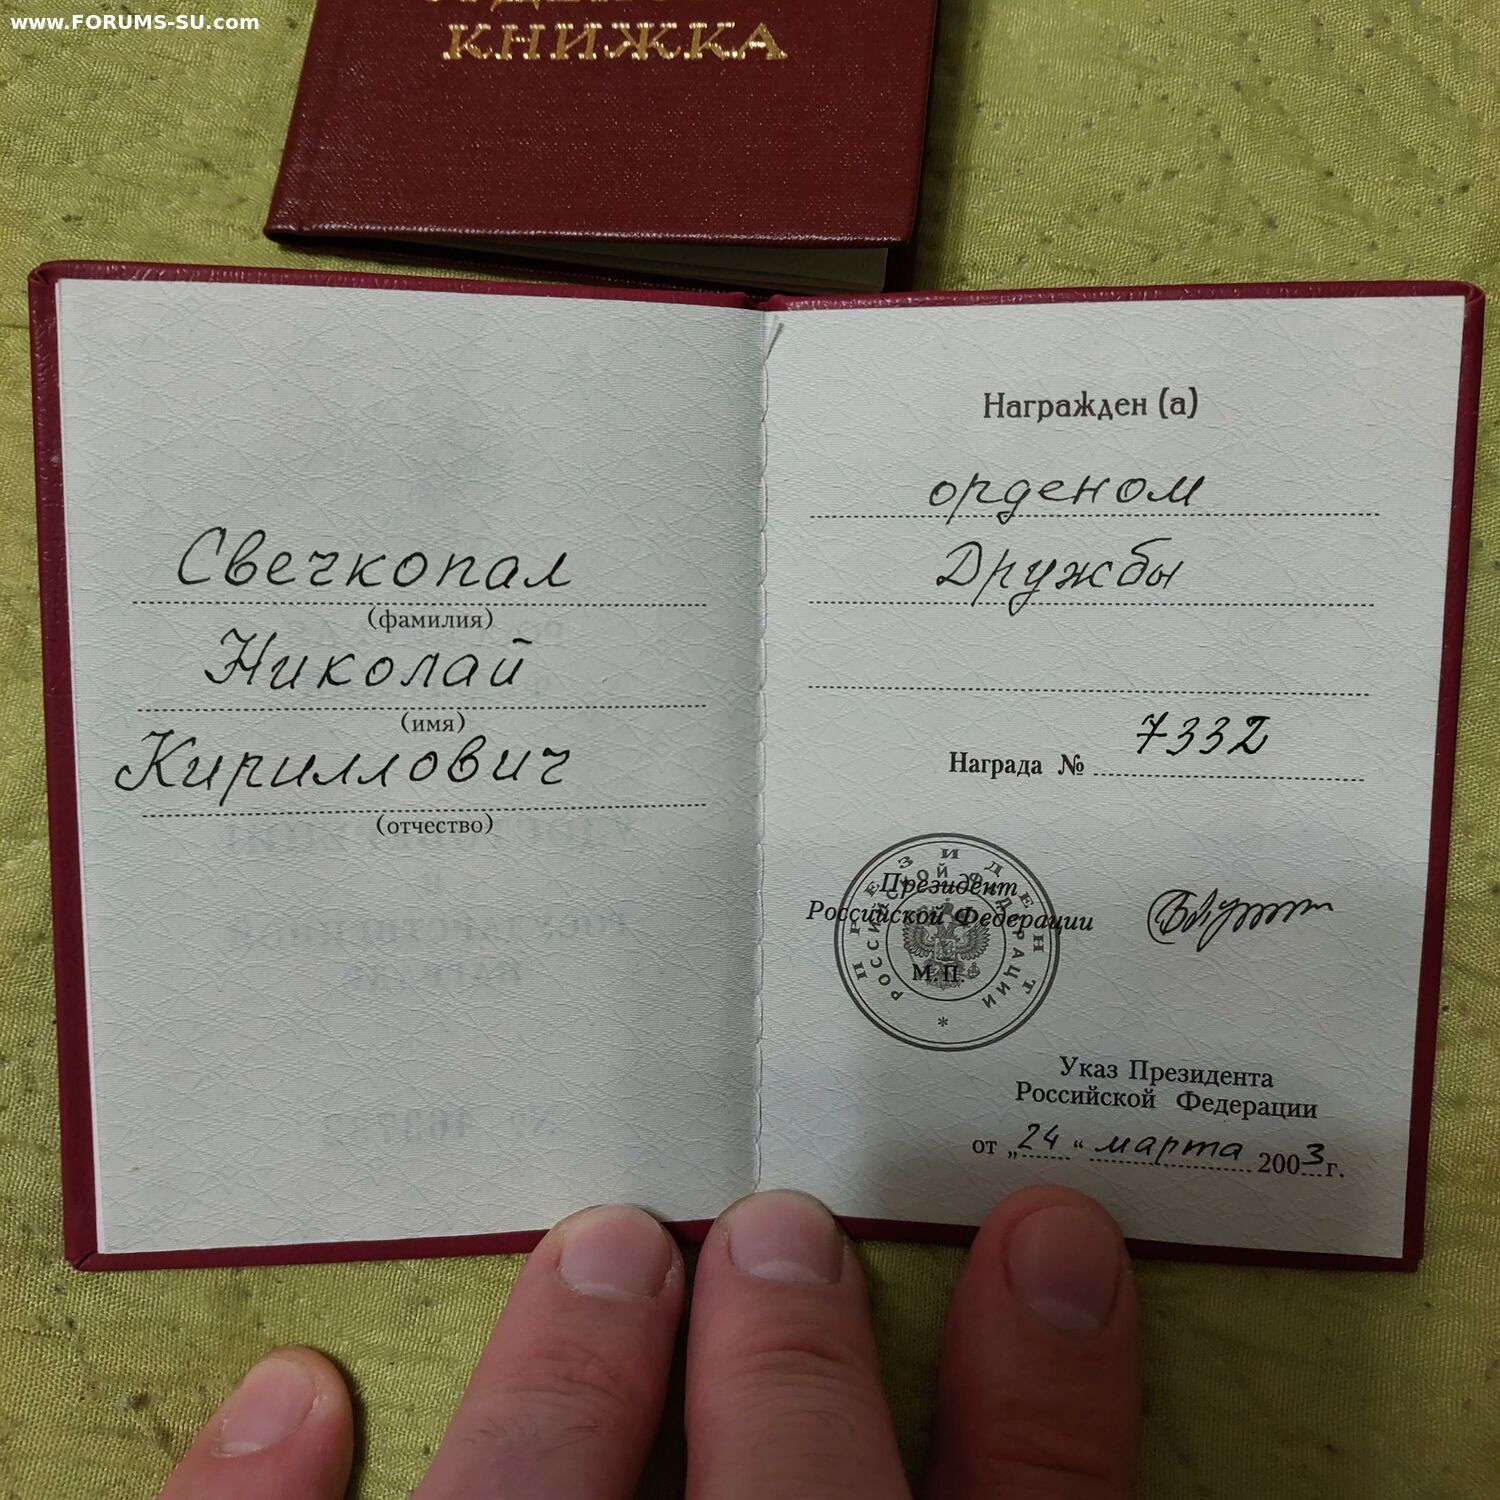 www.FORUMS-SU.com
КНИЖКА
Свечкопал
(фамилия)
Николай
(имя)
Кириллович
(отчество)
Награжден (а)
орденом
Дружбы
Награда № 7332
ПРЕЗИДЕНТ
РОССИЙСКОЙ ФЕДЕРАЦИИ
*
Президент
Российской Федерации
М.П.
Указ Президента
Российской Федерации
от „24“ марта 2003 г.